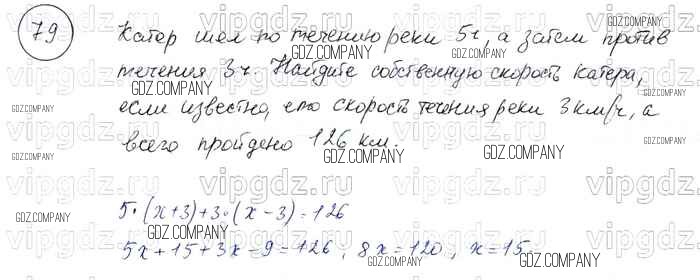 79
Катер шел по течению реки 5ч, а затем против
течения 3ч. Найдите собственную скорость катера,
если известно, что скорость течения реки 3 км/ч, а
всего пройдено 126 км.
5·(x+3)+3·(x-3)=126
5x+15+3x-9=126, 8x=120, x=15
GDZ.COMPANY
vipgdz.ru